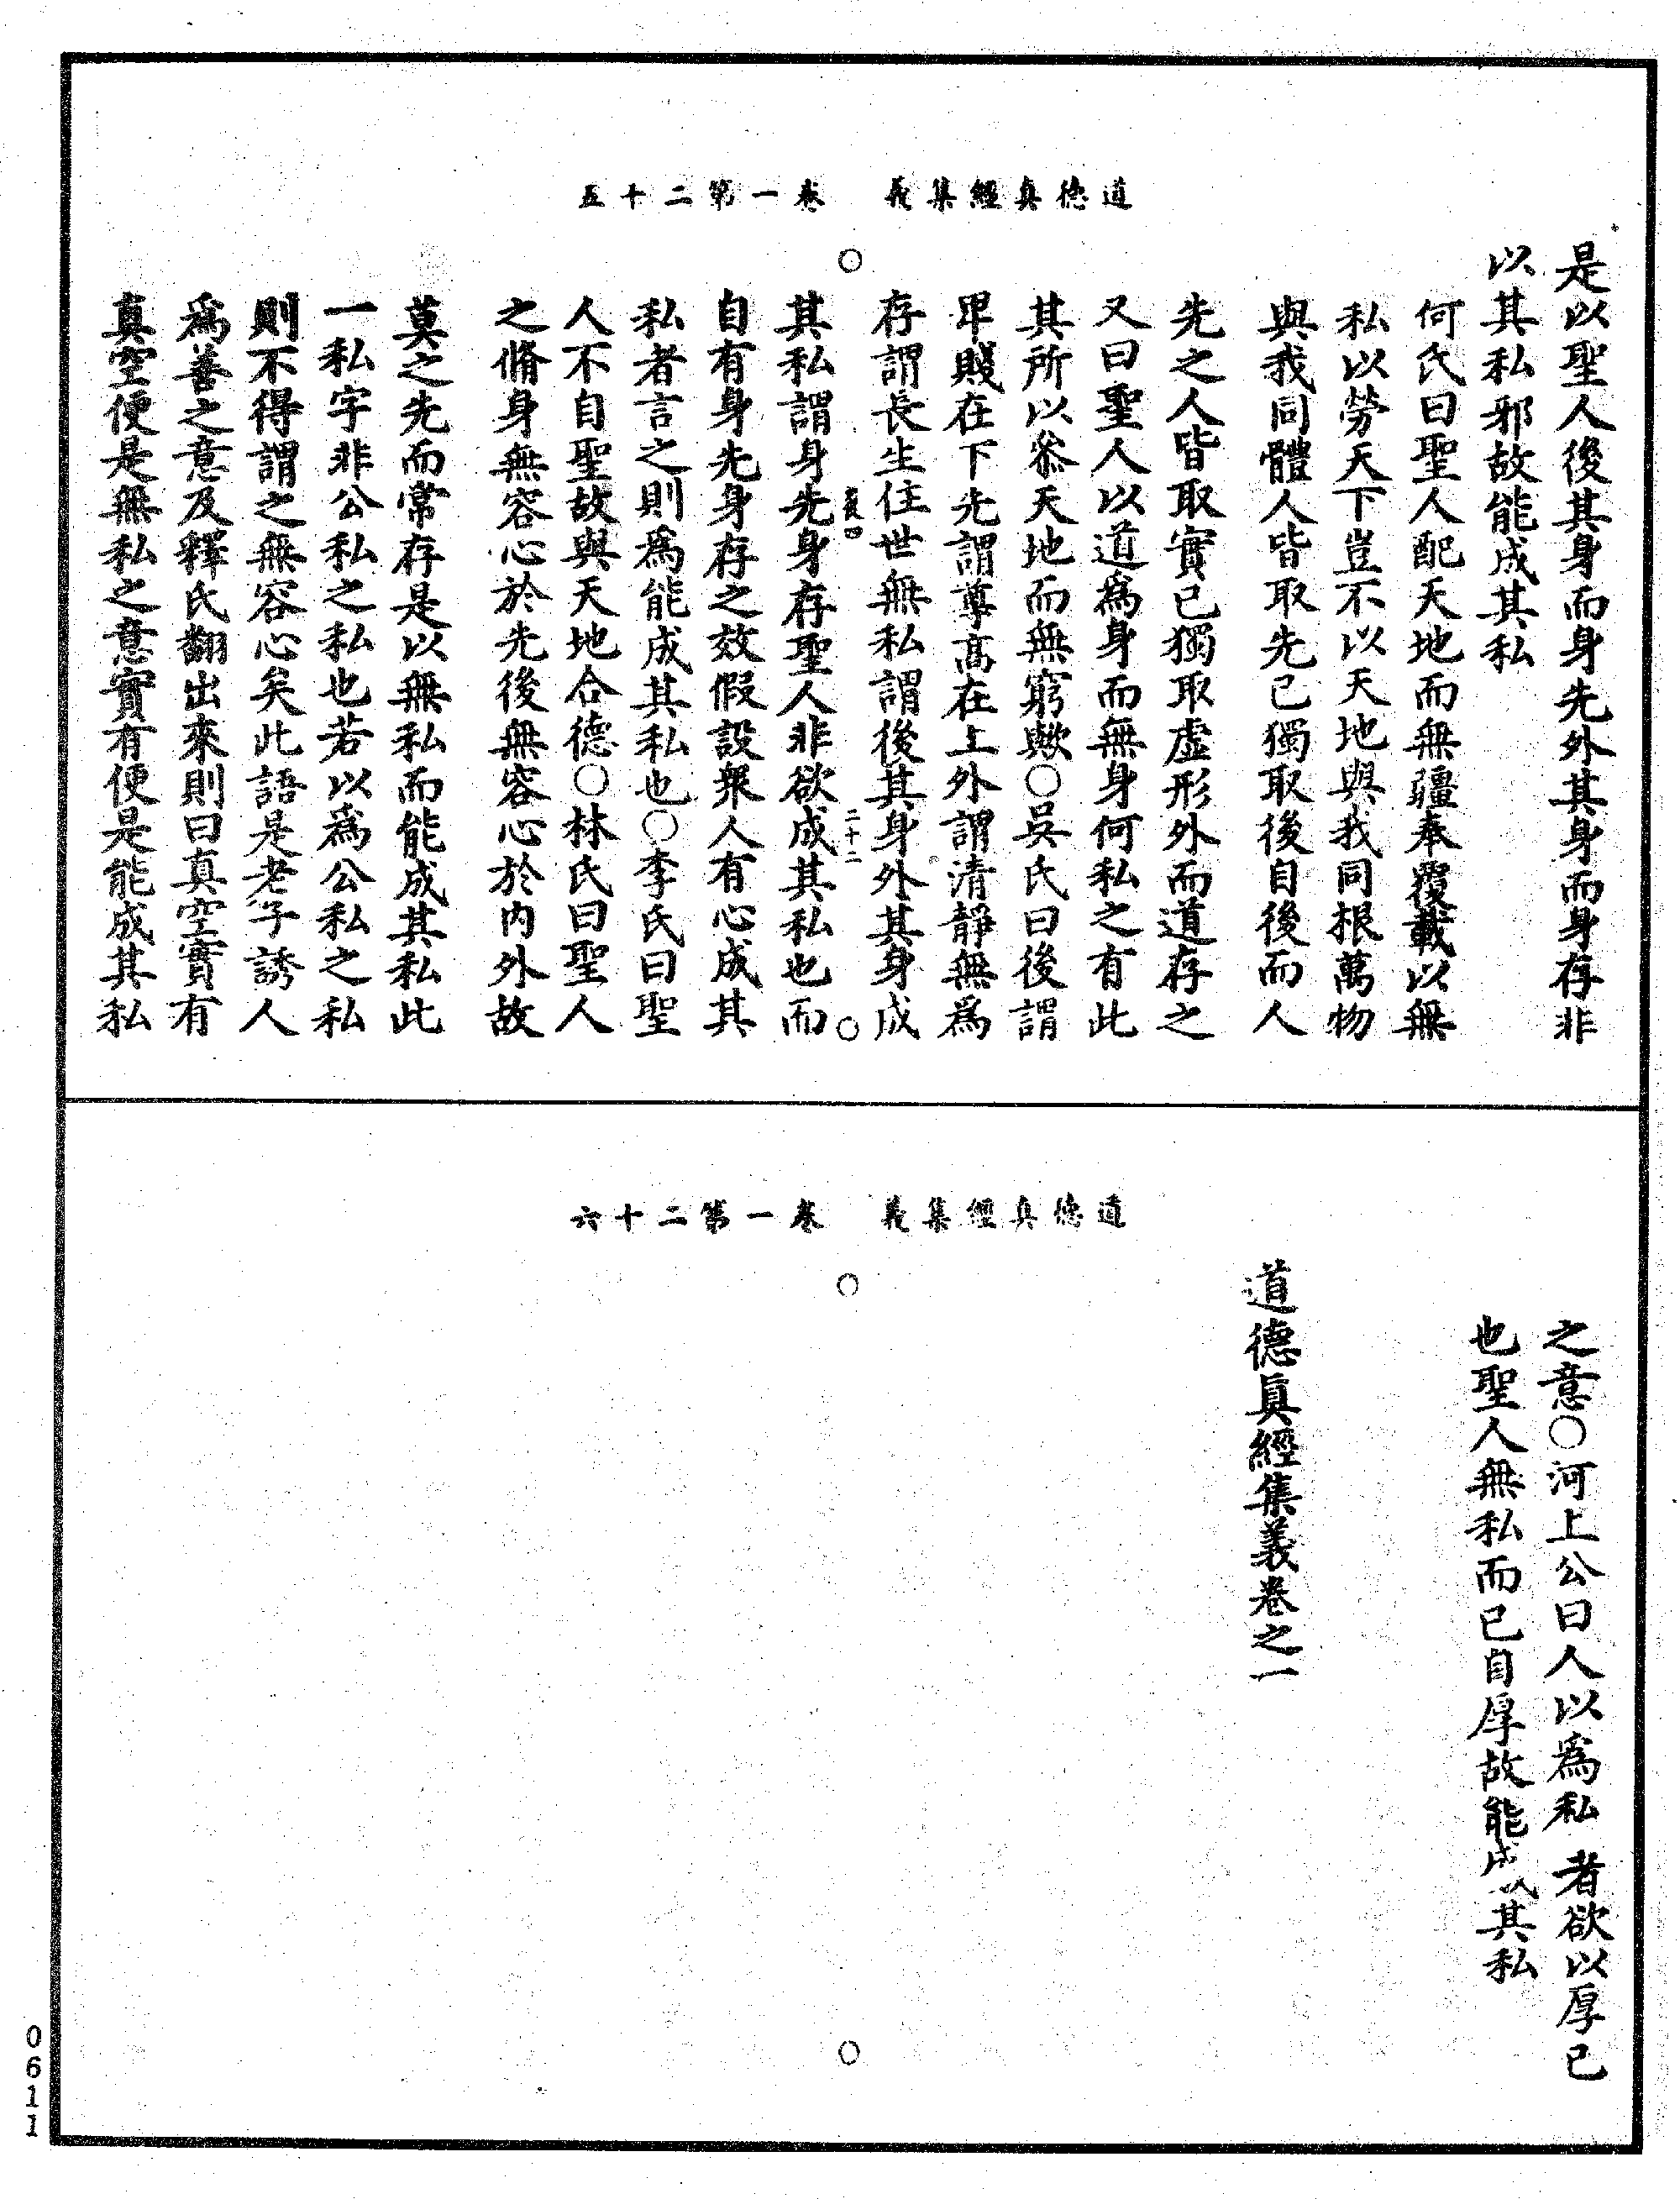 道德真經集義　卷一第二十五
是以聖人後其身而身先外其身而身存非
以其私邪故能成其私
何氏曰聖人配天地而無疆奉覆載以無
私以勞天下豈不以天地與我同根萬物
與我同體人皆取先己獨取後自後而人
先之人皆取實己獨取虛形外而道存之
又曰聖人以道為身而無身何私之有此
其所以叅天地而無窮歟○吳氏曰後謂
卑賤在下先謂尊高在上外謂清靜無為
存謂長生住世無私謂後其身外其身成
二十二
其私謂身先身存聖人非欲成其私也而
自有身先身存之效假設衆人有心成其
私者言之則為能成其私也○李氏曰聖
人不自聖故與天地合德○林氏曰聖人
之脩身無容心於先後無容心於内外故
莫之先而常存是以無私而能成其私此
一私字非公私之私也若以為公私之私
則不得謂之無容心矣此語是老子誘人
為善之意及釋氏翻出來則曰真空實有
真空便是無私之意實有便是能成其私
道德真經集義　卷一第二十六
之意○河上公曰人以為私者欲以厚己
也聖人無私而己自厚故能成其私
道德真經集義卷之一
0611